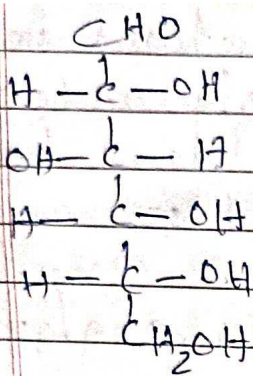 CHO
H - C - OH
OH - C - H
H - C - OH
H - C - OH
CH2OH